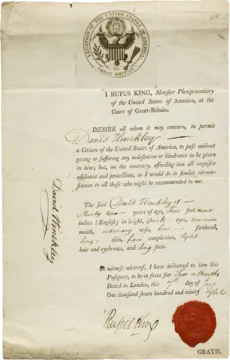 LEGATION OF THE UNITED STATES OF AMERICA
GREAT BRITAIN
I RUFUS KING, Minister Plenipotentiary
of the United States of America, at the
Court of Great-Britain.
DESIRE all whom it may concern, to permit
David Hinckley
a Citizen of the United States of America, to pass without
giving or suffering any molestation or hindrance to be given
to him; but, on the contrary, affording him all requisite
assistance and protection, as I would do in similar circum-
stances to all those who might be recommended to me.
David Hinckley
The said David Hinckley is
Thirty two years of age,
inches English in height,
mouth, ordinary nose, forehead,
long chin, complexion, light
hair and eyebrows, and long face.
In witness whereof, I have delivered to him this
Passport, to be in force for
Dated in London, the day of
One thousand seven hundred and ninety
Rufus King
GRATIS.